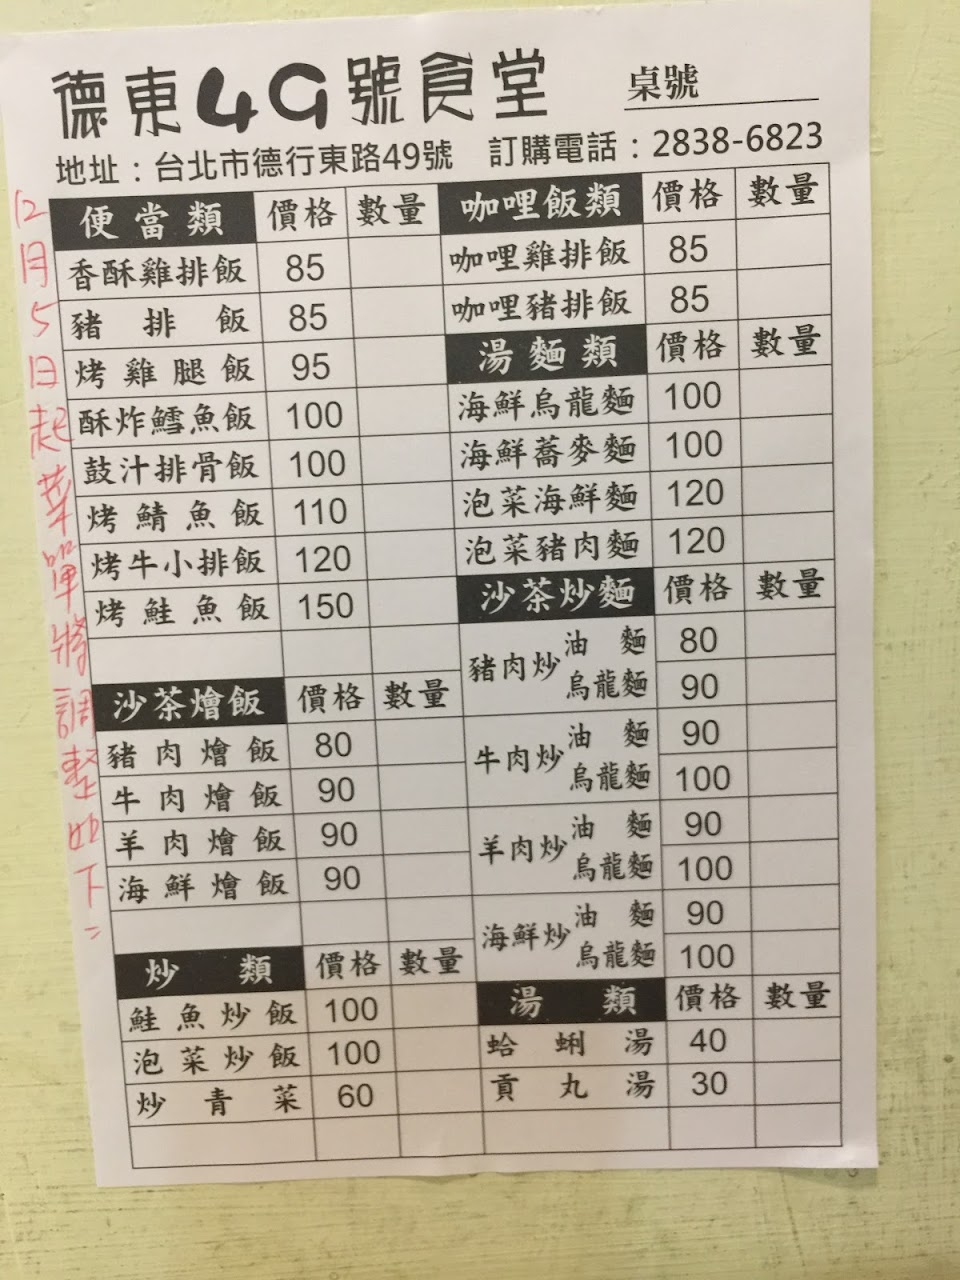 德東49號食堂 桌號
地址：台北市德行東路49號 訂購電話：2838-6823
12月5日起菜單將調整如下：
便當類 價格 數量
香酥雞排飯 85
豬排飯 85
烤雞腿飯 95
酥炸鱈魚飯 100
鼓汁排骨飯 100
烤鯖魚飯 110
烤牛小排飯 120
烤鮭魚飯 150
沙茶燴飯 價格 數量
豬肉燴飯 80
牛肉燴飯 90
羊肉燴飯 90
海鮮燴飯 90
炒類 價格 數量
鮭魚炒飯 100
泡菜炒飯 100
炒青菜 60
咖哩飯類 價格 數量
咖哩雞排飯 85
咖哩豬排飯 85
湯麵類 價格 數量
海鮮烏龍麵 100
海鮮蕎麥麵 100
泡菜海鮮麵 120
泡菜豬肉麵 120
沙茶炒麵 價格 數量
豬肉炒 油麵 80
烏龍麵 90
牛肉炒 油麵 90
烏龍麵 100
羊肉炒 油麵 90
烏龍麵 100
海鮮炒 油麵 90
烏龍麵 100
湯類 價格 數量
蛤蜊湯 40
貢丸湯 30